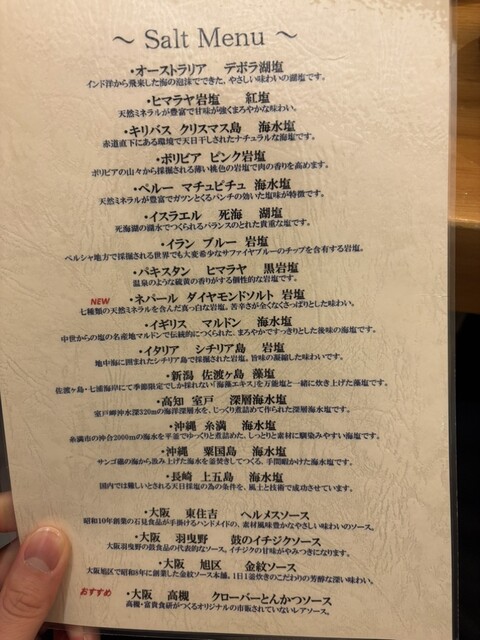 ～ Salt Menu ～
・オーストラリア　デボラ湖塩
インド洋から飛来した海の泡沫でできた、やさしい味わいの湖塩です。
・ヒマラヤ岩塩　紅塩
天然ミネラルが豊富で甘味が強くまろやかな味わい。
・キリバス クリスマス島　海水塩
赤道直下にある環境で天日干しされたナチュラルな海塩です。
・ボリビア ピンク岩塩
ボリビアの山々から採掘される薄い桃色の岩塩で肉の香りを高めます。
・ペルー マチュピチュ 海水塩
天然ミネラルが豊富でガツンとくるパンチの効いた塩味が特徴です。
・イスラエル　死海　湖塩
死海湖の湖水でつくられるバランスのとれた貴重な塩です。
・イラン ブルー 岩塩
ペルシャ地方で採掘される世界でも大変希少なサファイヤブルーのチップを含有する岩塩。
・パキスタン　ヒマラヤ　黒岩塩
温泉のような硫黄の香りがする個性的な岩塩です。
NEW
・ネパール　ダイヤモンドソルト 岩塩
七種類の天然ミネラルを含んだ真っ白な岩塩。苦辛さが全くなくさっぱりとした味わい。
・イギリス　マルドン　海水塩
中世からの塩の名産地マルドンで伝統的につくられた、まろやかですっきりとした後味の海塩です。
・イタリア　シチリア島　岩塩
地中海に囲まれたシチリア島で採掘された岩塩。旨味の凝縮した味わいです。
・新潟 佐渡ヶ島 藻塩
佐渡ヶ島・七浦海岸にて季節限定でしか採れない「海藻エキス」を万能塩と一緒に炊き上げた藻塩です。
・高知 室戸　深層海水塩
室戸岬沖水深320mの海洋深層水を、じっくり煮詰めて作られた深層海水塩です。
・沖縄 糸満　海水塩
糸満市の沖合2000mの海水を平釜でゆっくりと煮詰めた、しっとりと素材に馴染みやすい海塩です。
・沖縄　粟国島　海水塩
サンゴ礁の海から汲み上げた海水を釜焚きしてつくる、手間暇かけた海水塩です。
・長崎　上五島　海水塩
国内では難しいとされる天日採塩の為の条件を、風土と技術で成功させています。
・大阪　東住吉　ヘルメスソース
昭和10年創業の石見食品が手掛けるハンドメイドの、素材風味豊かなやさしい味わいのソース。
・大阪　羽曳野　鼓のイチジクソース
大阪羽曳野の鼓食品の代表的なソース。イチジクの甘味がやみつきになります。
・大阪　旭区　金紋ソース
大阪旭区で昭和8年に創業した金紋ソース本舗。1日1釜炊きのこだわりの芳醇な深い味わい。
おすすめ
・大阪　高槻　クローバーとんかつソース
高槻・富貴食研がつくるオリジナルの市販されていないレアソース。